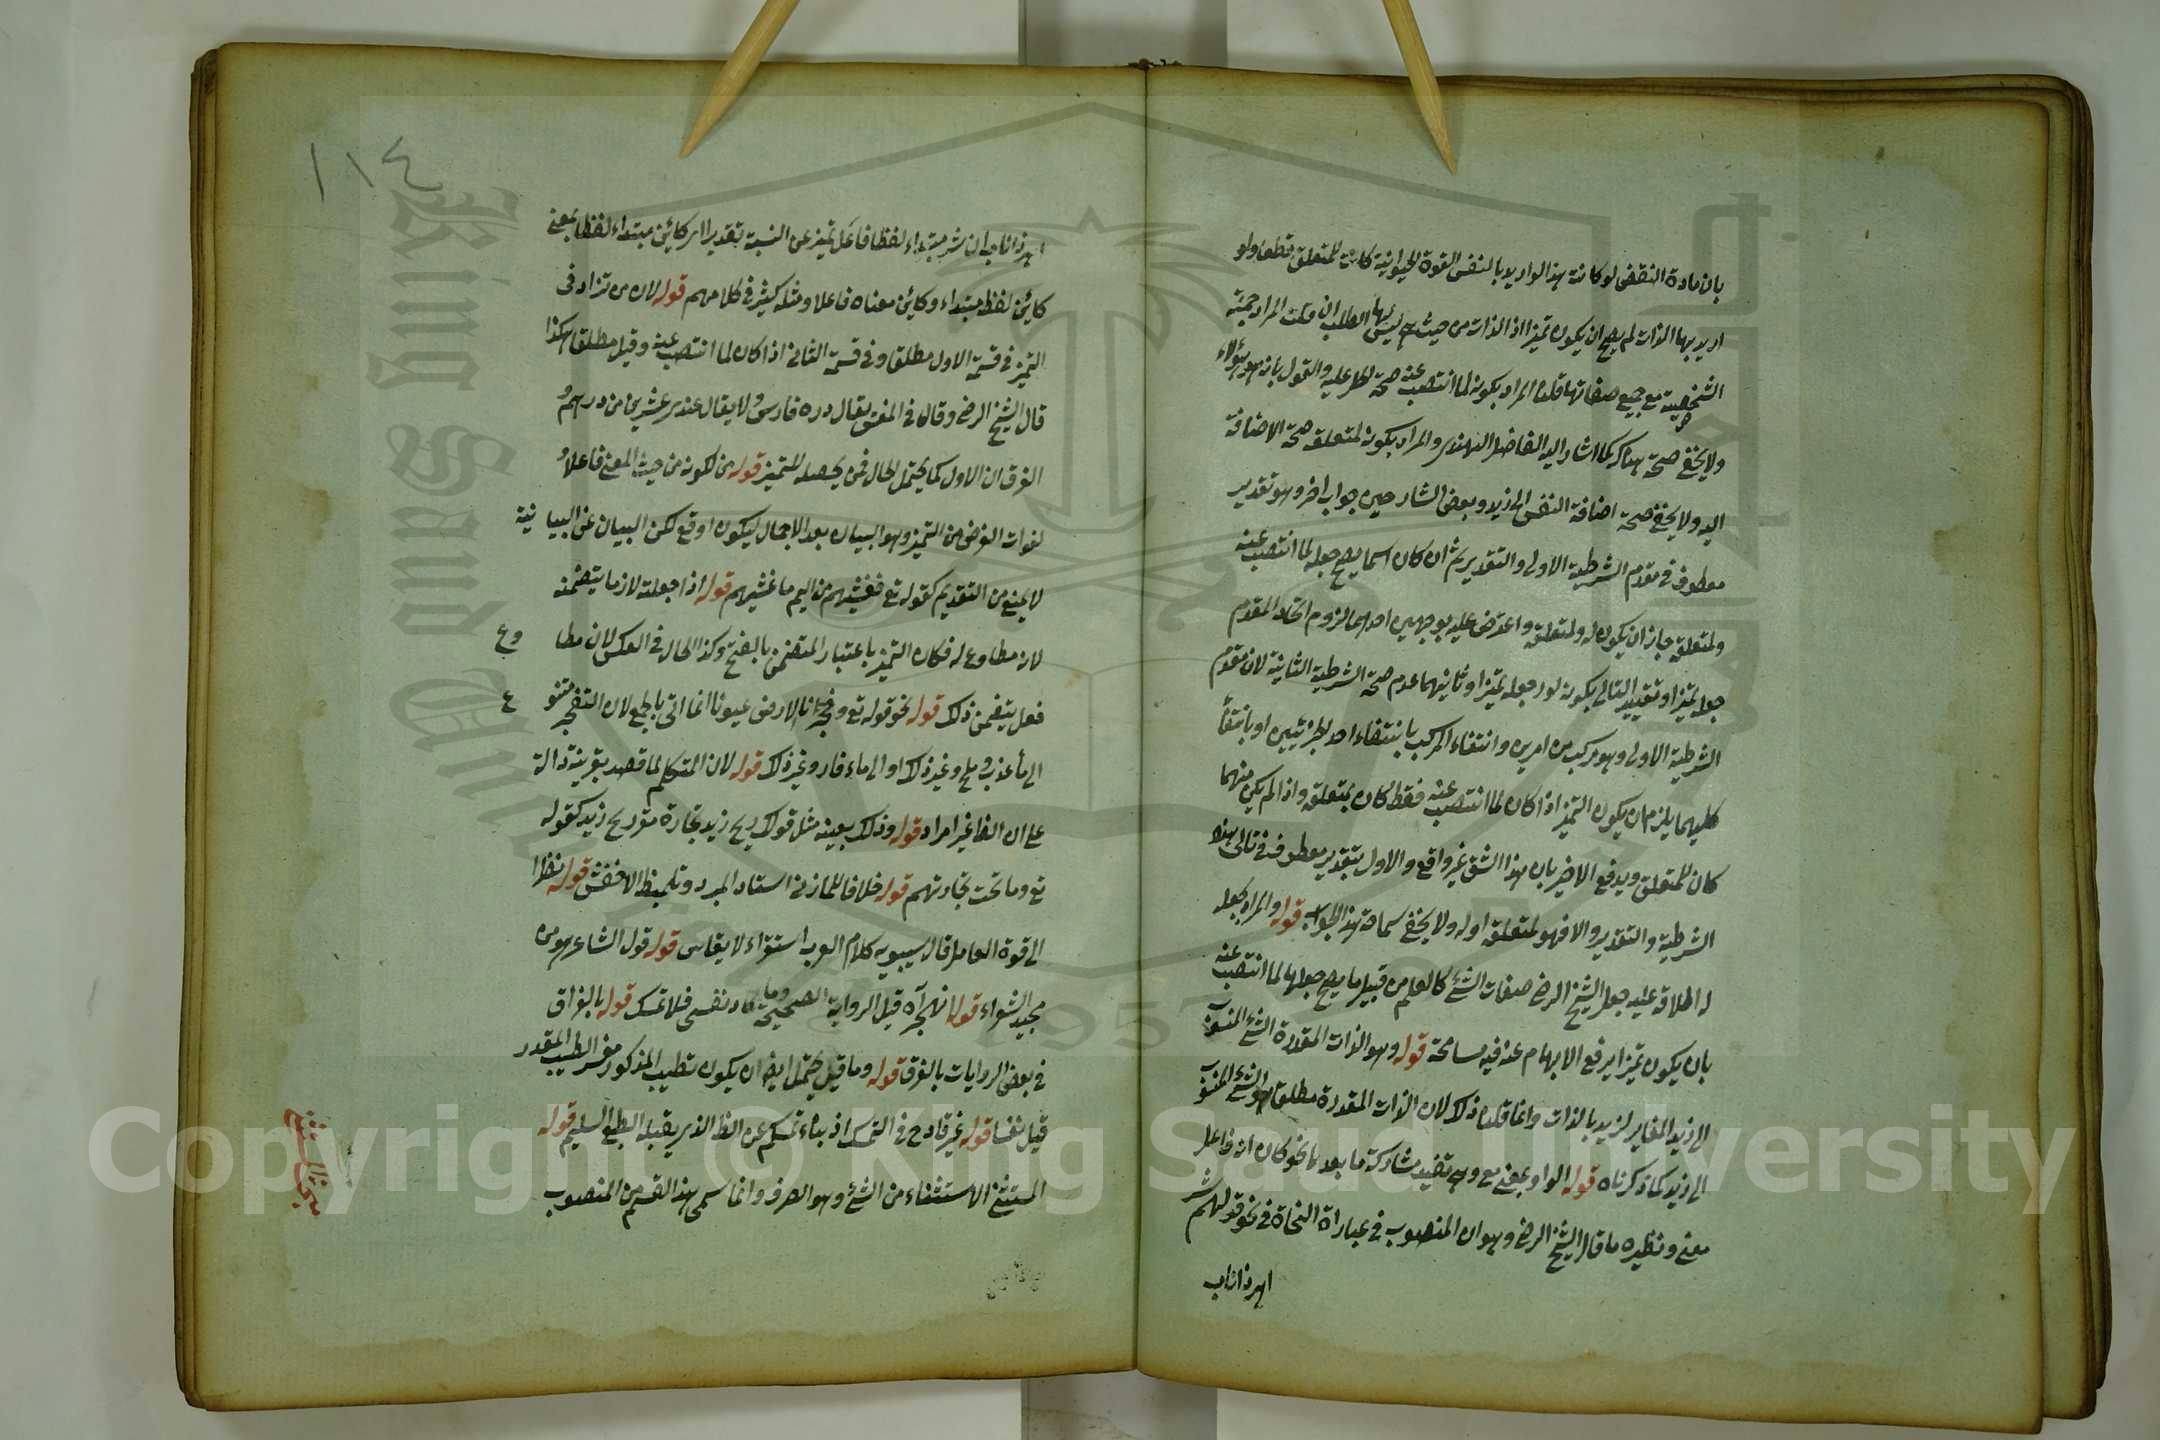 بان مادة النقض لو كانت هذا لو اريد بالنفس القوة الحيوانية كانت للمتعلق قطعا ولو
اريد بها الذات لم يصح ان يكون تميزا اذ الذات من حيث هي ليس بها ان قلت المراد حمية
الشخصية مع جميع صفاتها قلنا المراد بكونه لما انتصب عنه صحة الحمل عليه والقول بانه هو هؤلاء
ولا يخفى صحة هناك كما اشار اليه الفاضل الهندي والمراد بكونه لمتعلقه صحة الاضافة
اليه ولا يخفى صحة اضافة النفس الى زيد وبعض الشارحين جواب اخر وهو تقدير
معطوف في مقدم الشرطية الاولى والتقدير ثم ان كان اسما يصح جعله لما انتصب عنه
ولمتعلقه جاز ان يكون له ولمتعلقه واعترض عليه بوجهين احدهما لزوم اتحاد المقدم
جعله تميزا وتقييد التالي بكونه لو جعله تميزا وثانيهما عدم صحة الشرطية الثانية لان مقدم
الشرطية الاولى وهو مركب من امرين وانتفاء المركب بانتفاء احد الجزئيين او بانتفا
كليهما يلزم ان يكون التميز اذا كان لما انتصب عنه فقط كان بمتعلقه واذا لم يكن منهما
كان للمتعلق ويدفع الاخير بان هذا الشق غير واقع والاول بتقدير معطوف في تالي هذه
الشرطية والتقدير والا فهو لمتعلقه اوله ولا يخفى سماجة هذا الجواب قوله والمراد بجعله
له اطلاقه عليه جعل الشيخ الرضي صفات الشئ كالعلم من قبيل ما يصح جعلها لما انتصب عنه
بان يكون تميزا يرفع الابهام عنه فيه مسامحة قوله وهو الذات المقدرة الشئ المنسوب
الى زيد المغاير لزيد بالذات وانما قلنا ذلك لان الذات المقدرة مطلقا هو الشئ المنسوب
الى زيد كما ذكرناه قوله الواو بمعنى مع وهي تفيد مشاركة ما بعد نحو كان انه فاعل
معنى ونظيره ما قال الشيخ الرضي وهو ان المنصوب في عبارات النحاة في نحو قولهم شر
اهر ذا ناب
١١٤
اهر ذا ناب ان شر مبتداء لفظا فاعل تميز عن النسبة بتقدير الامر كائن مبتداء لفظا بمعنى
كائن لفظه مبتداء وكائن معناه فاعلا ومثله كثير في كلامهم قوله لان من تزاد في
التميز في قسمة الاول مطلق وفي قسمة الثاني اذا كان لما انتصب عنه وقيل مطلقا هكذا
قال الشيخ الرضي وقال في المغني يقال دره فارسى ولا يقال عندي عشرين من درهم و
الفرق ان الاول كما يحتمل الحال فمن يحصله للتميز قوله من لكونه من حيث المعنى فاعلا و
لفوات الغرض من التميز وهو البيان بعد الاجمال ليكون اوقع لكن البيان عن البيا نية
لا يمنع من التقديم كقوله تع فغشيهم من اليم ما غشيهم قوله اذا جعلته لازما يتضمنه
لانه مطاوع له فكان التميز باعتبار المتضمن بالفتح وكذا الحال في العكس لان مطا وع
فعل يتضمن ذلك قوله نحو قوله تع وفجرنا الارض عيونا انما اتى بالجمع لان التفجر متنو ع
الى ماء عذب وملح وغير ذلك او الى ماء فار وغير ذلك قوله لان المتكلم لما قصد بقرينة دالة
على ان الفا غير امراد قوله وذلك بعينه مثل قولك ربح زيد تجارة مؤ ربح زيد كقوله
تع وما ربحت تجارتهم قوله خلافا للمازني استاد المبرد وتلميذ الاخفش قوله نظرا
الى قوة العامل قال سيبويه كلام العرب استقراء لا يقاس قوله قول الشاعر هو من
مجيد الشعراء قوله اتهجر آه قيل الرواية الصحيحة وما كاد نفسي فلا تمسك قوله بالفراق
في بعض الروايات بالفرق قوله وما قيل يحتمل ايضا ان يكون تطيب المذكور مفسر الطيب المقدر
قيل نفسا قوله غير قادح في التمسك اذ بناء تمسكهم عن الظ الذي يقبله الطبع السليم قوله
المستثنى الاستثناء من الشئ وهو الصرف وانما سمى هذا القسم من المنصوب
مبحث المستثنى
Copyright © King Saud University
King Saud University
1957